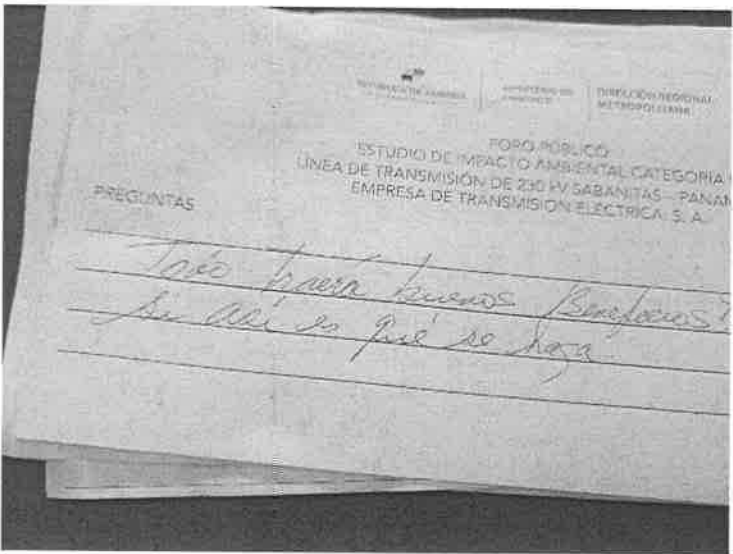 REPÚBLICA DE PANAMÁ
MINISTERIO DE AMBIENTE
DIRECCIÓN REGIONAL
METROPOLITANA
FORO PÚBLICO
ESTUDIO DE IMPACTO AMBIENTAL CATEGORÍA
LÍNEA DE TRANSMISIÓN DE 230 kV SABANITAS - PANAM
EMPRESA DE TRANSMISIÓN ELÉCTRICA, S. A.
PREGUNTAS
buenos Beneficios?
Si así es que se haga